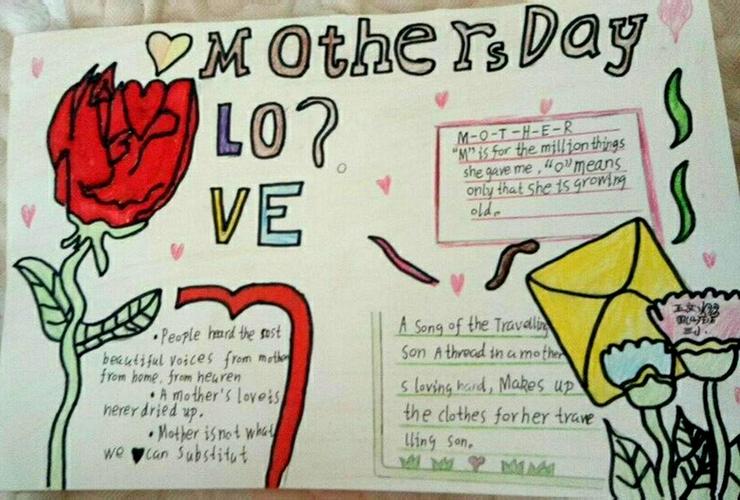 Mothers Day
LO?
VE
M-O-T-H-E-R
"M" is for the million things
she gave me, "O" means
only that she is growing
old.
• People heard the
beautiful voices from mother
from home, from heaven
• A mother's love is
never dried up.
• Mother is not what
we can Substitut
A Song of the Travelling
Son A thread in a mother
s loving hand, Makes up
the clothes for her trave
lling son.